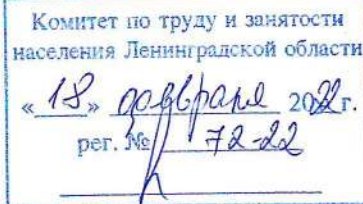 Комитет по труду и занятости
населения Ленинградской области
«18» февраля 2022 г.
рег. № 72-22